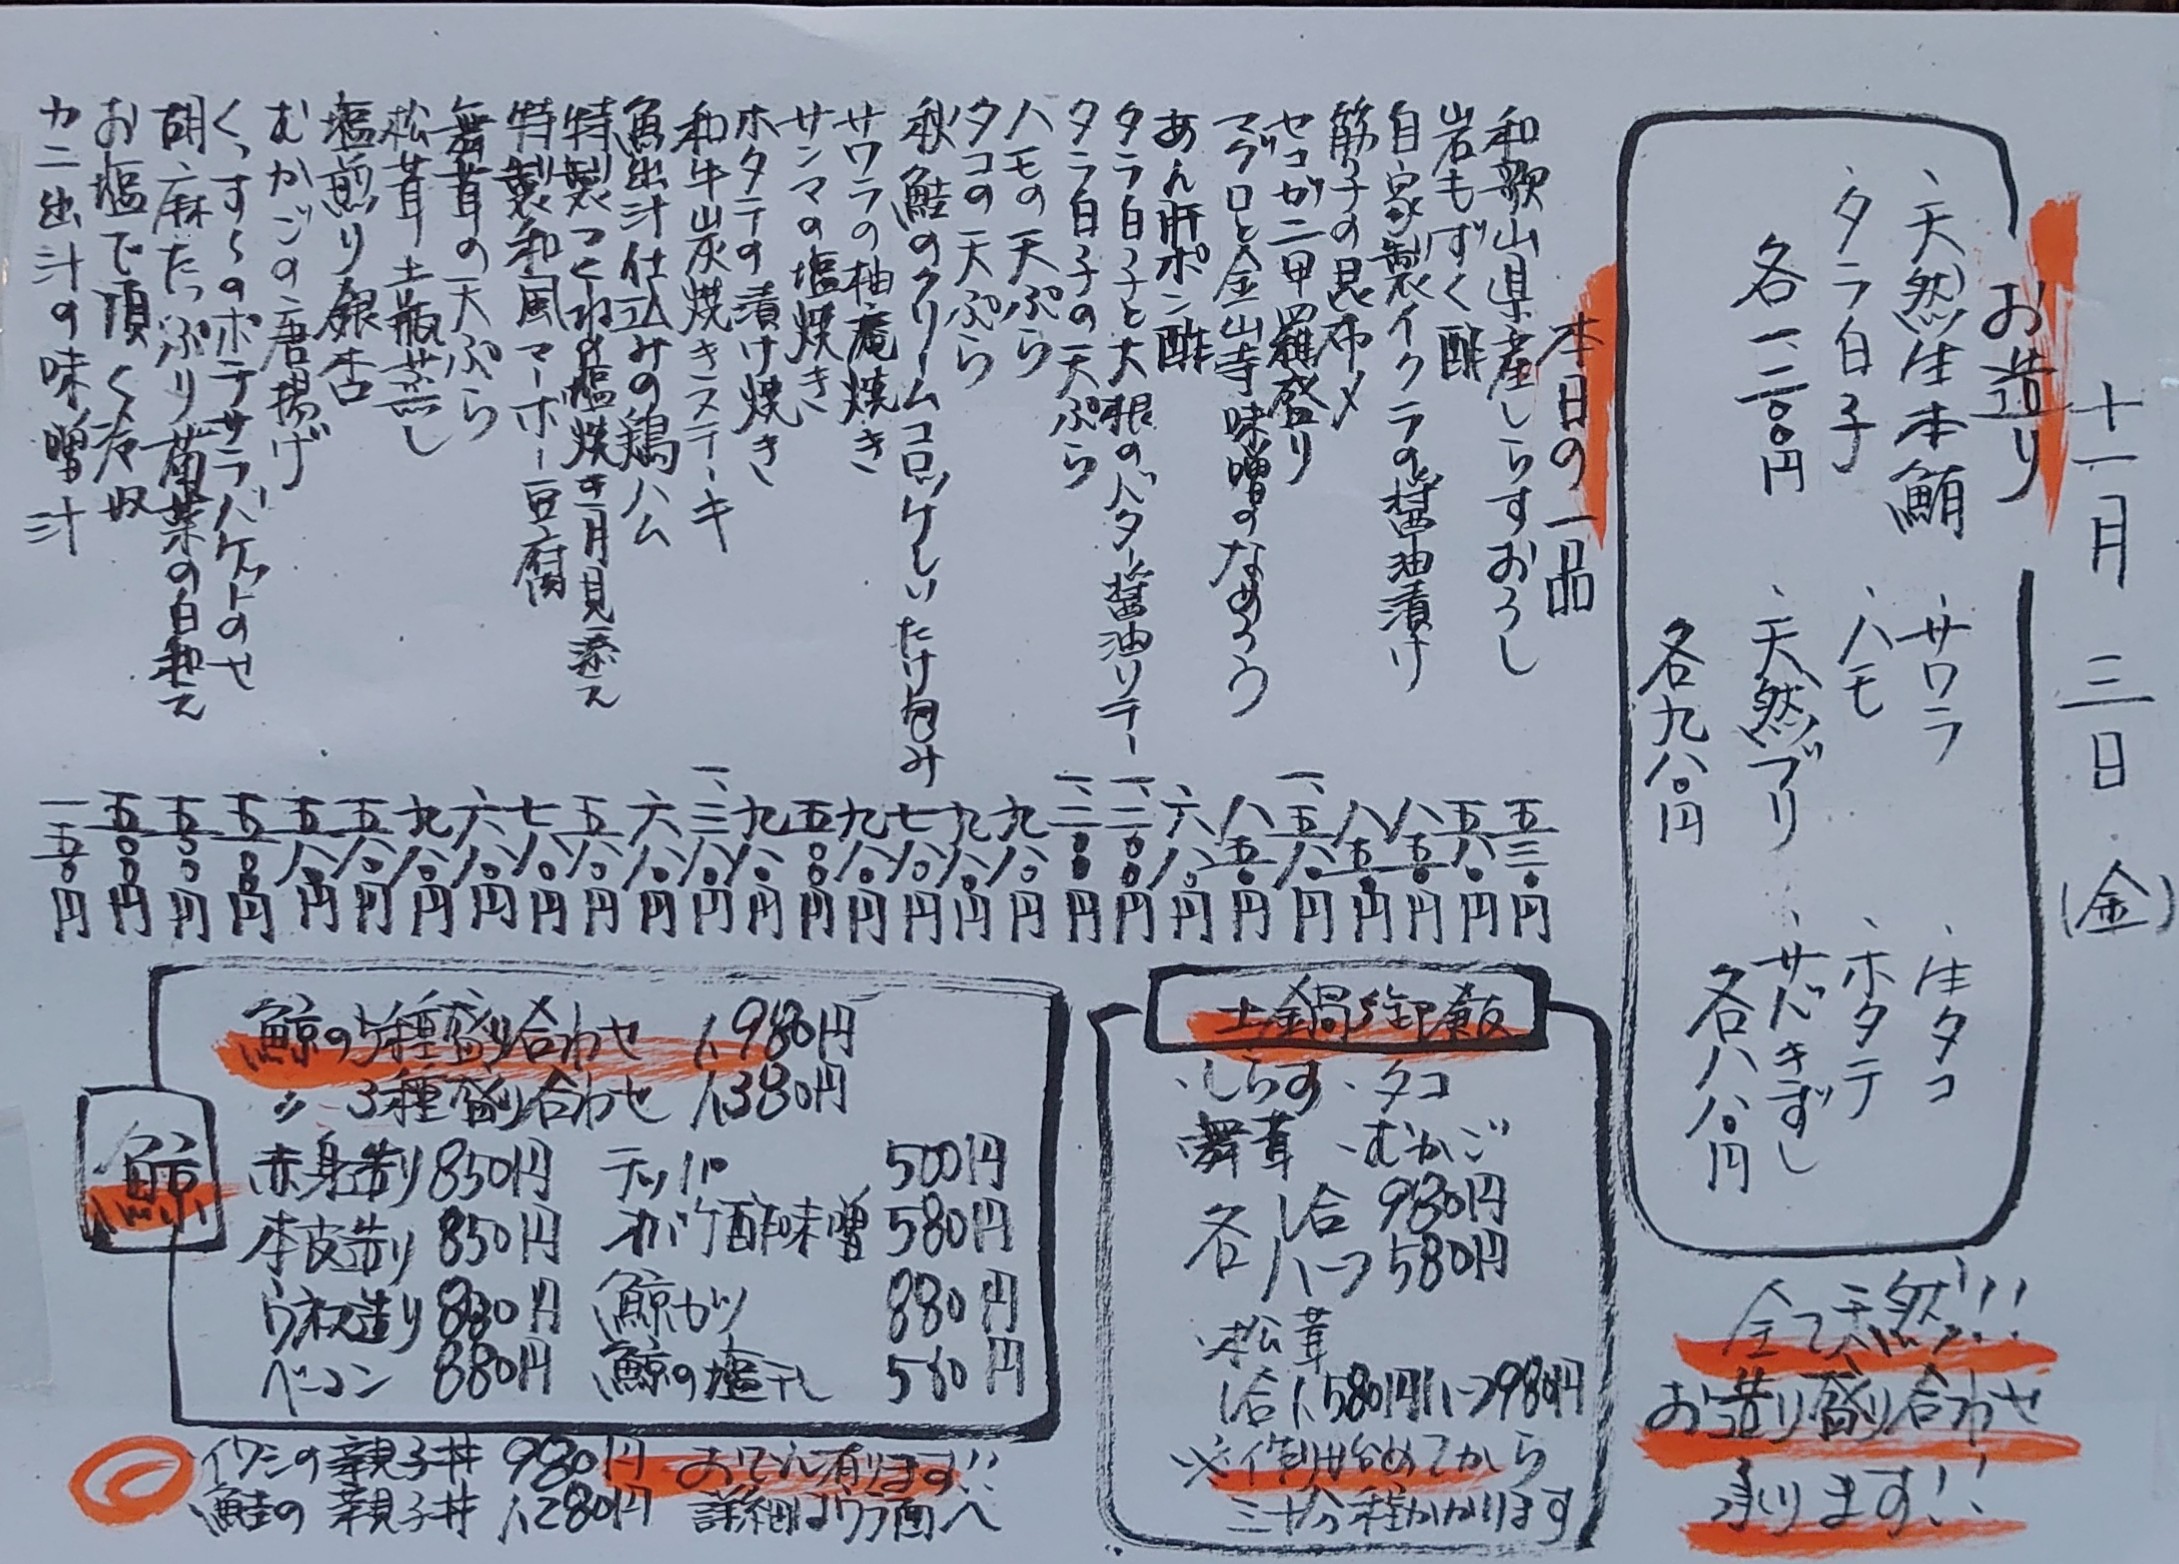 十一月三日(金)
お造り
、天然生本鮪
、タラ白子
各一、二〇〇円
、サワラ
、ハモ
、天然ブリ
各九八〇円
、生タコ
、ホタテ
、サバきずし
各八八〇円
全て天然!!!
お造り盛り合わせ
承ります!!
本日の一品
和歌山県産しらすおろし 五三〇円
岩もずく酢 五八〇円
自家製イクラの醤油漬け 八五〇円
筋子の昆布〆 八五〇円
セコガニ甲羅盛り 一、五八〇円
マグロと金山寺味噌のなめろう 八五〇円
あん肝ポン酢 六八〇円
タラ白子と大根のバター醤油ソテー 一、二〇〇円
タラ白子の天ぷら 一、二〇〇円
ハモの天ぷら 九八〇円
タコの天ぷら 九八〇円
秋鮭のクリームコロッケしいたけ包み 七八〇円
サワラの柚庵焼き 九八〇円
サンマの塩焼き 五〇〇円
ホタテの漬け焼き 九八〇円
和牛炭焼きステーキ 一、三八〇円
魚出汁仕込みの鶏ハム 六八〇円
特製つくねの塩焼き月見添え 五八〇円
特製和風マーボー豆腐 七八〇円
舞茸の天ぷら 六八〇円
松茸土瓶蒸し 九八〇円
塩煎り銀杏 五八〇円
むかごの唐揚げ 五八〇円
くっすーのポテサラバケットのせ 五〇〇円
胡麻たっぷり菊菜の白和え 五五〇円
お塩で頂く冷奴 五〇〇円
カニ出汁の味噌汁 一五〇円
土鍋御飯
、しらす、タコ
舞茸、むかご
各1合 980円
ハーフ 580円
、松茸
1合1,580円ハーフ980円
※作り始めてから
三十分程かかります
鯨
鯨の5種盛り合わせ 1,980円
〃 3種盛り合わせ 1,380円
赤身造り 850円 テッパ 500円
本皮造り 850円 オバケ酢味噌 580円
ウネス造り 880円 鯨カツ 880円
ベーコン 880円 鯨の塩干し 580円
イワシの親子丼 980円
鮭の親子丼 1,280円
おでん有ります!!
詳細はウラ面へ